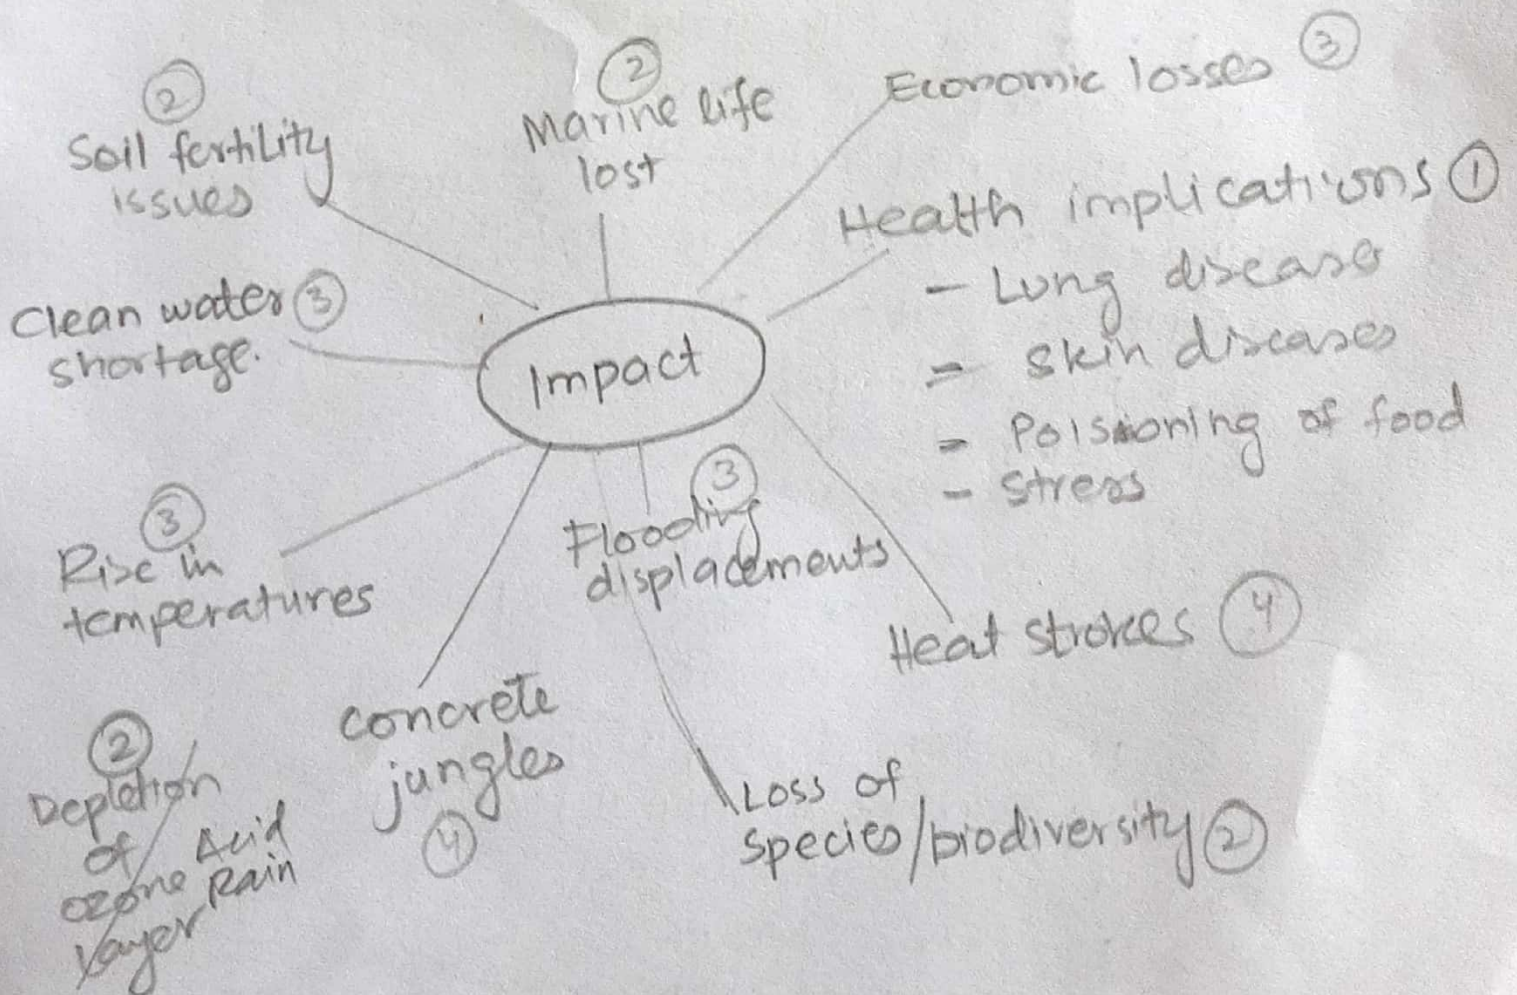 ②
Soil fertility
issues
②
Marine life
lost
Economic losses ③
Health implications ①
- Lung diseases
- Skin diseases
- Poisioning of food
- Stress
Clean water ③
shortage.
Impact
③
Rise in
temperatures
③
Flooding
displacements
Heat strokes ④
②
Depletion
of
ozone
layer
Acid
Rain
concrete
jungles
④
Loss of
species/biodiversity ②